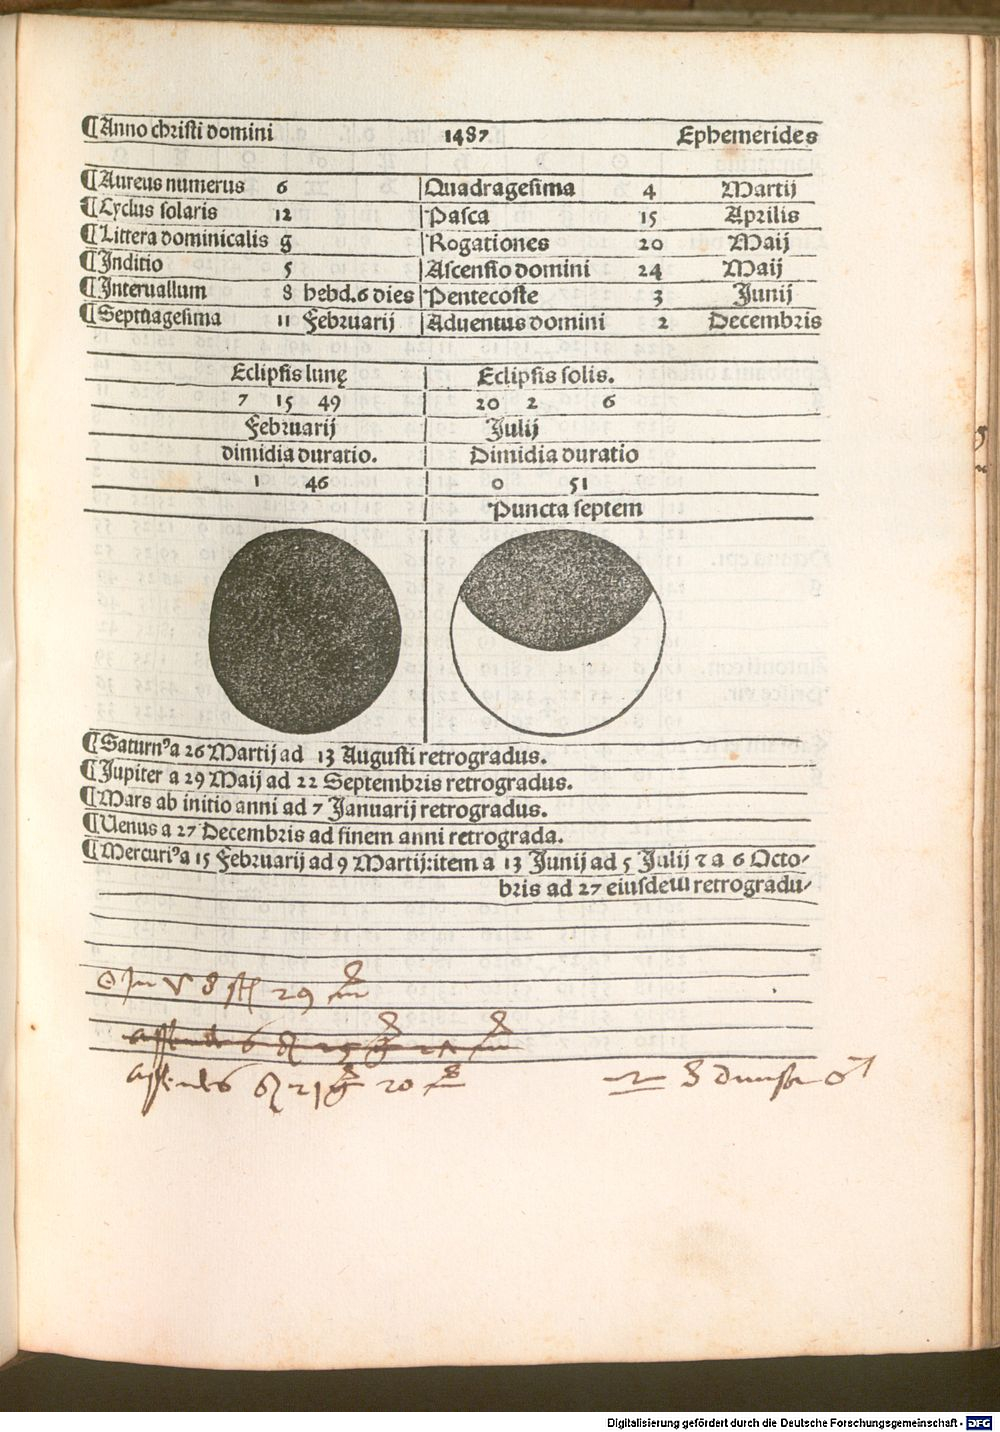 ¶Anno christi domini 1487 Ephemerides
¶Aureus numerus 6 Quadragesima 4 Martij
¶Cyclus solaris 12 Pasca 15 Aprilis
¶Littera dominicalis g Rogationes 20 Maij
¶Inditio 5 Ascensio domini 24 Maij
¶Interuallum 8 hebd.6 dies Pentecoste 3 Junij
¶Septuagesima 11 Februarij Aduentus domini 2 Decembris
Eclipsis lunę Eclipsis solis.
7 15 49 20 2 6
Februarij Julij
dimidia duratio. Dimidia duratio
1 46 0 51
Puncta septem
¶Saturnꝰ a 26 Martij ad 13 Augusti retrogradus.
¶Jupiter a 29 Maij ad 22 Septembris retrogradus.
¶Mars ab initio anni ad 7 Januarij retrogradus.
¶Uenus a 27 Decembris ad finem anni retrograda.
¶Mercuriꝰ a 15 Februarij ad 9 Martij:item a 13 Junij ad 5 Julij ⁊ a 6 Octo⸗
bris ad 27 eiusdem retrogradu⸗
29
20
Digitalisierung gefördert durch die Deutsche Forschungsgemeinschaft - DFG